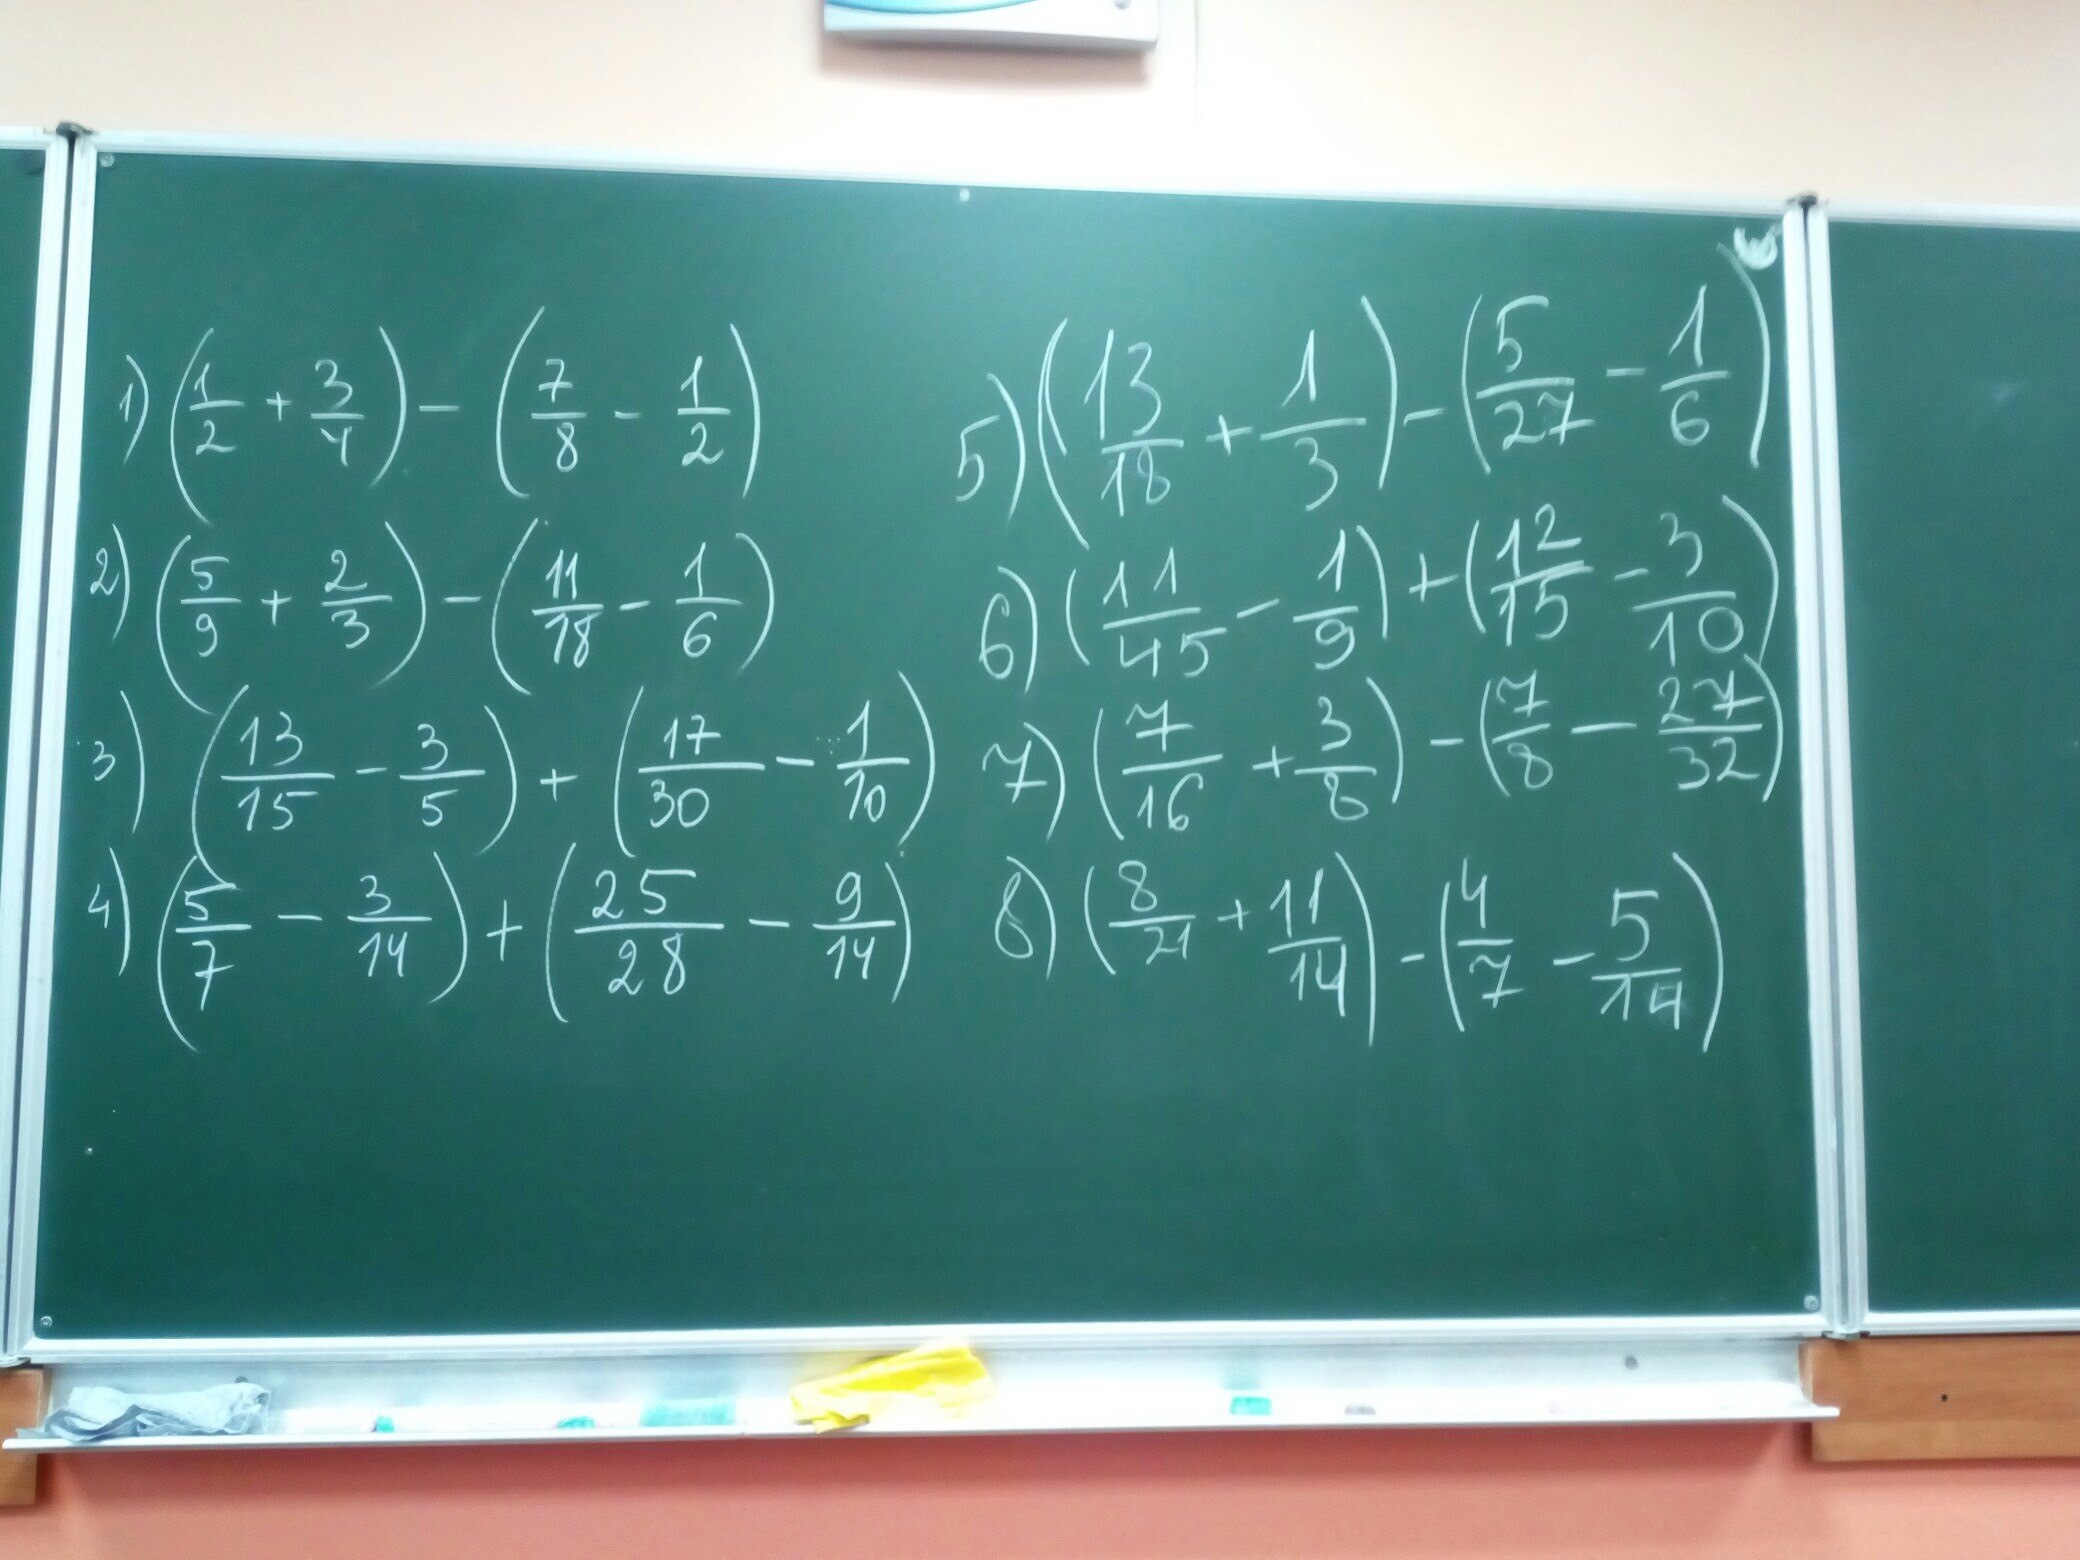 1) (1/2 + 3/4) - (7/8 - 1/2)
2) (5/9 + 2/3) - (11/18 - 1/6)
3) (13/15 - 3/5) + (17/30 - 1/10)
4) (5/7 - 3/14) + (25/28 - 9/14)
5) (13/18 + 1/3) - (5/27 - 1/6)
6) (11/45 - 1/9) + (12/15 - 3/10)
7) (7/16 + 3/8) - (7/8 - 27/32)
8) (8/21 + 11/14) - (4/7 - 5/14)